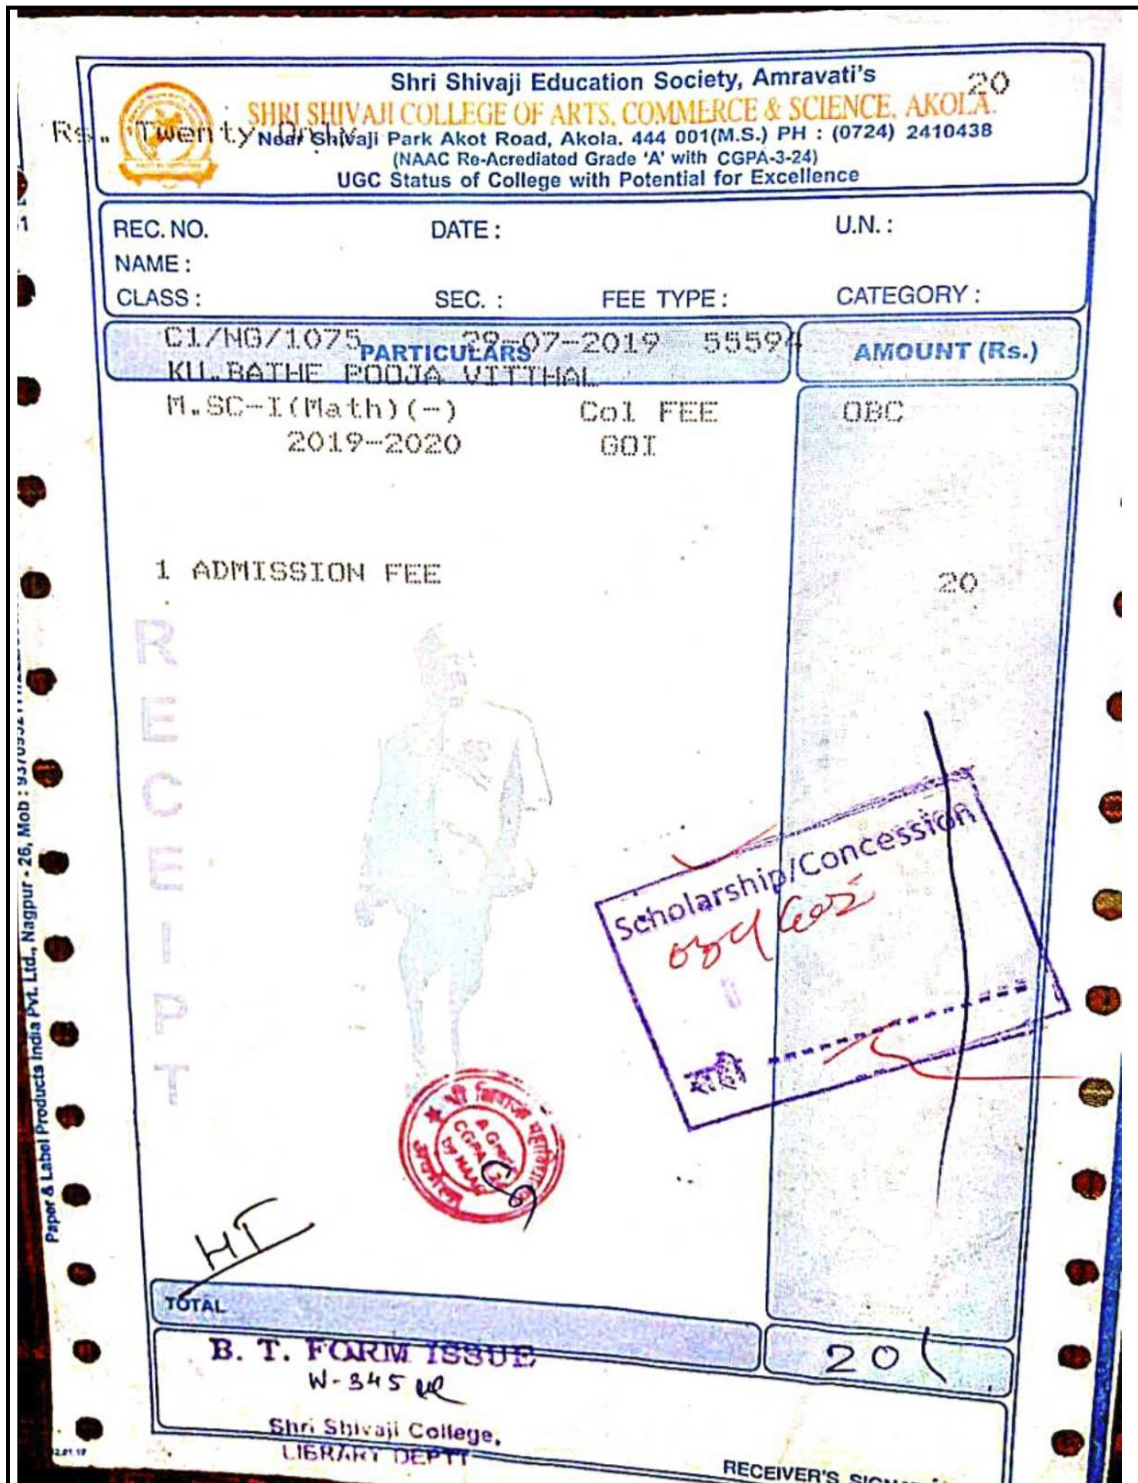 Shri Shivaji Education Society, Amravati's
20
SHRI SHIVAJI COLLEGE OF ARTS, COMMERCE & SCIENCE, AKOLA.
Rs. Twenty Only
Near Shivaji Park Akot Road, Akola. 444 001(M.S.) PH : (0724) 2410438
(NAAC Re-Acrediated Grade 'A' with CGPA-3-24)
UGC Status of College with Potential for Excellence
REC. NO. DATE : U.N. :
NAME :
CLASS : SEC. : FEE TYPE : CATEGORY :
C1/NG/1075 29-07-2019 55594
PARTICULARS AMOUNT (Rs.)
KU.BATHE POOJA VITTHAL
M.SC-I(Math)(-) Col FEE OBC
2019-2020 GOI
1 ADMISSION FEE 20
RECEIPT
Scholarship/Concession
सही
श्री शिवाजी
A Grade
CGPA
by NAAC
HT
TOTAL
20/
B. T. FORM ISSUE
W-345
Shri Shivaji College,
LIBRARY DEPTT
RECEIVER'S
Paper & Label Products India Pvt. Ltd., Nagpur - 26, Mob :